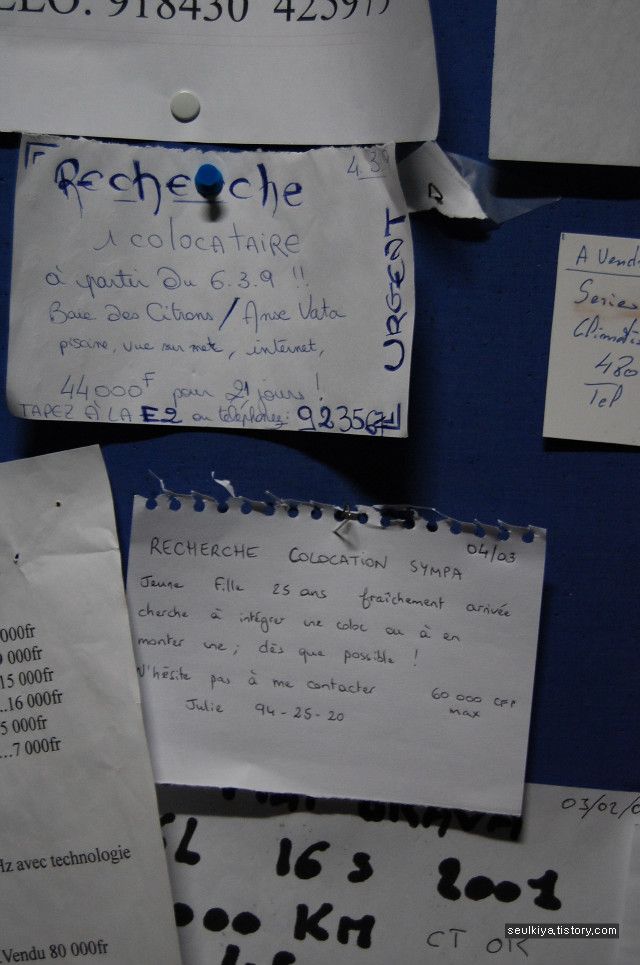 918430 425977
Recherche
4.3.9
1 COLOCATAIRE
à partir du 6.3.9 !!
Baie des Citrons / Anse Vata
piscine, vue sur mer, internet,
44000F pour 21 jours !
TAPEZ À LA E2 ou téléphonez:
URGENT
A Vend
Series
Climatis
480
Tel
RECHERCHE COLOCATION SYMPA
04/03
Jeune Fille 25 ans fraîchement arrivée
cherche à intégrer une coloc ou à en
monter une; dès que possible !
N'hésite pas à me contacter
60 000 CFP
max
Julie 94-25-20
000fr
000fr
15 000fr
..16 000fr
5 000fr
...7 000fr
Hz avec technologie
Vendu 80 000fr
03/02/0
BRAVA
16 s 2001
000 KM
CT OK
seulkiya.tistory.com